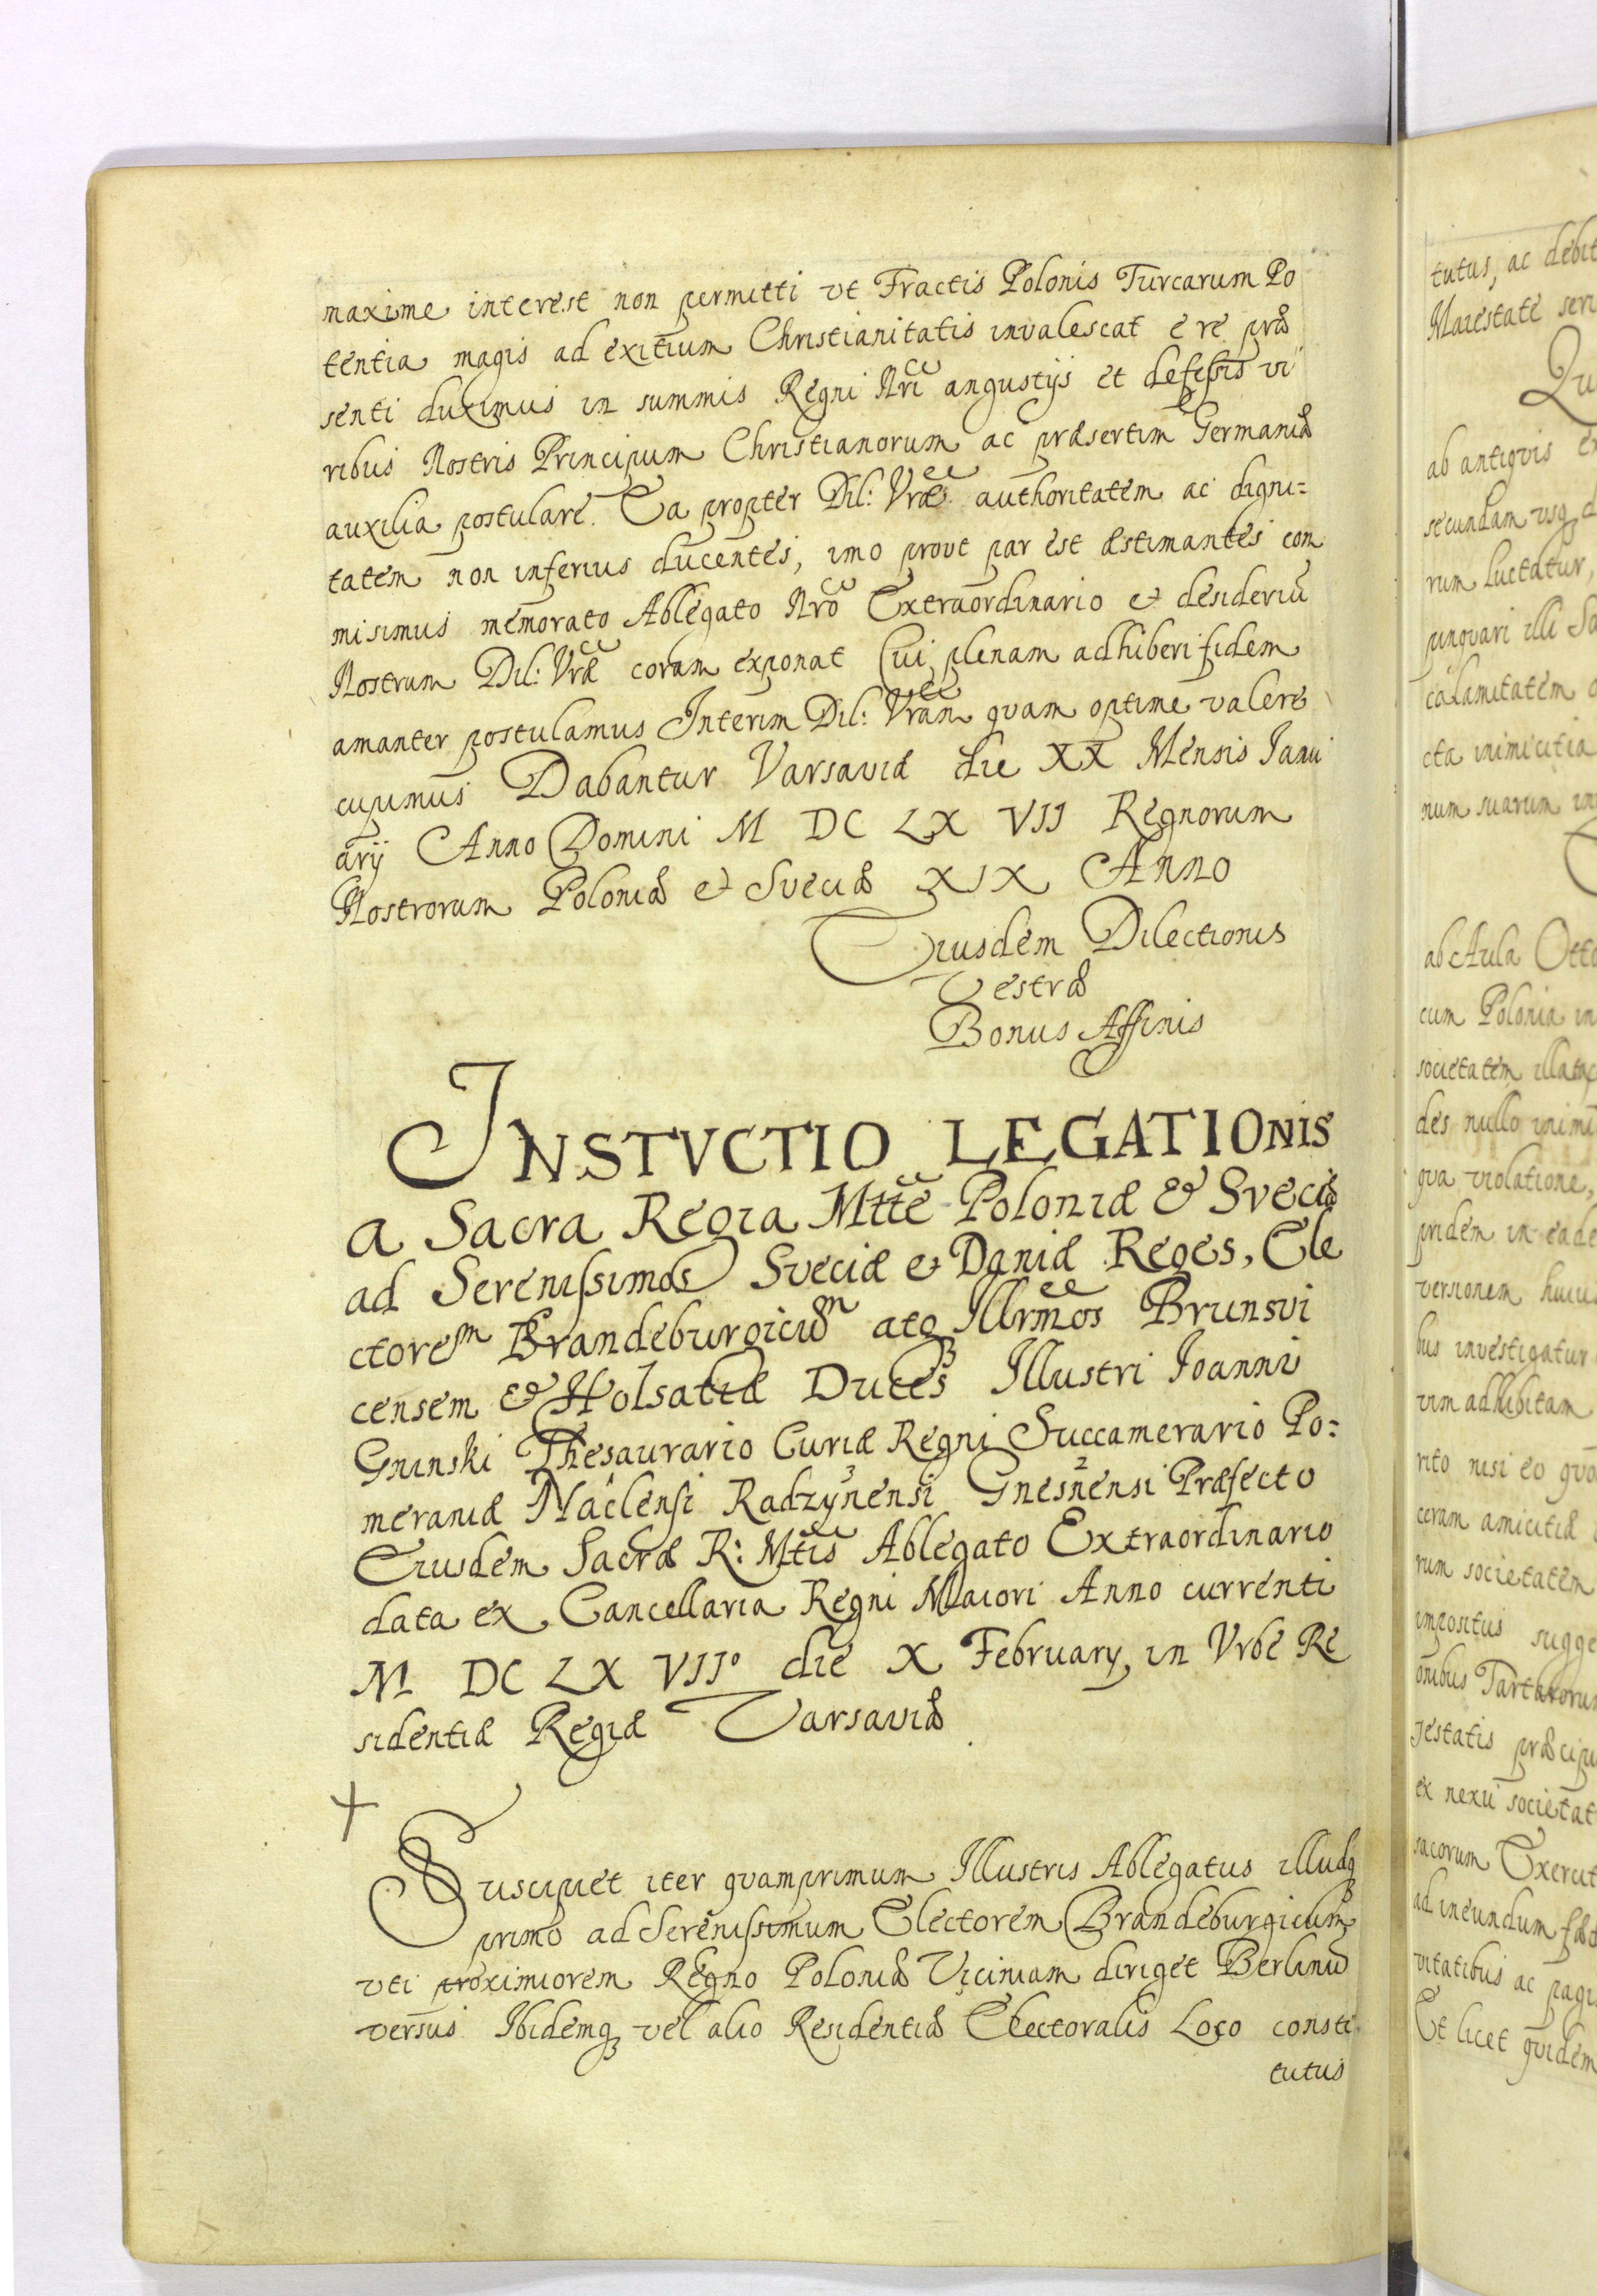 maxime interest non permitti vt Fractis Polonis Turcarum Po
tentia magis ad exitium Christianitatis invalescat e re præ
senti duximus in summis Regni Nri angustijs et defessis vi
ribus Nostris Principum Christianorum ac præsertim Germaniæ
auxilia postulare. Ea propter Dil: Vræ authoritatem ac digni=
tatem non inferius ducentes, imo prout par est æstimantes com
misimus memorato Ablegato Nro Extraordinario et desideriũ
Nostrum Dil: Vræ coram exponat Cui plenam adhiberi fidem
amanter postulamus Interim Dil: Vram quam optime valere
cupimus Dabantur Varsaviæ die XX Mensis Janu
arij Anno Domini M DC LX VII Regnorum
Nostrorum Poloniæ et Sveciæ XIX Anno
Eiusdem Dilectionis
Vestræ
Bonus Affinis
INSTVCTIO LEGATIONIS
a Sacra Regia Mtte Poloniæ & Sveciæ
ad Serenissimos Sveciæ et Daniæ Reges, Ele
ctorem Brandeburgicum atq Illrmos Brunsvi
censem & Holsatiæ Duces Illustri Joanni
Gninski Thesaurario Curiæ Regni Succamerario Po=
meraniæ Naclensi Radzynensi 3 Gnesnensi 2 Præfecto
Eiusdem Sacræ R: Mtis Ablegato Extraordinario
data ex Cancellaria Regni Maiori Anno currenti
M DC LX VIIº die X February in Vrbe Re
sidentiæ Regiæ Varsaviæ
Suscipiet iter quamprimum Illustris Ablegatus illudq
primo ad Serenissimum Electorem Brandeburgicum
vti proximiorem Regno Poloniæ Viciniam diriget Berlinũ
versus Ibidemq vel alio Residentiæ Electoralis Loco consti
tutus
tutus, ac debit
Maiestate seri
Qu
ab antiqvis ex
secundam vsq
rum luctatur,
calamitatem
cta inimicitia
num suarum
ab Aula Otto
cum Polonia in
societatem illataq
des nullo inimi
qua violatione,
pridem in eade
versionem huiu
bus investigatur
vim adhibitam
rito nisi eo quo
ceram amicitiæ
rum societatem
impositus sugge
onibus Tartarorum
jestatis præcipu
ex nexu societat
sacorum Exercit
ad ineundum fæd
vitatibus ac pagi
Et licet quidem